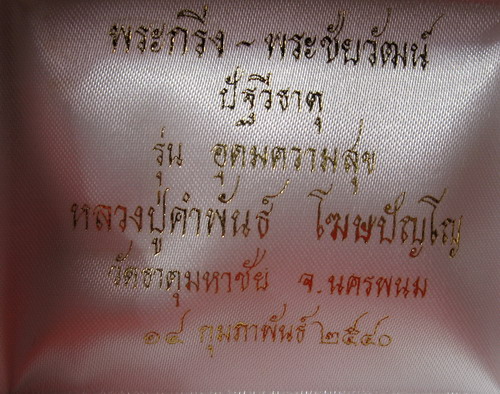 พระกริ่ง ~ พระชัยวัฒน์
ปัฐวีธาตุ
รุ่น อุดมความสุข
หลวงปู่คำพันธ์ โฆษปัญโญ
วัดธาตุมหาชัย จ.นครพนม
๑๔ กุมภาพันธ์ ๒๕๔๐